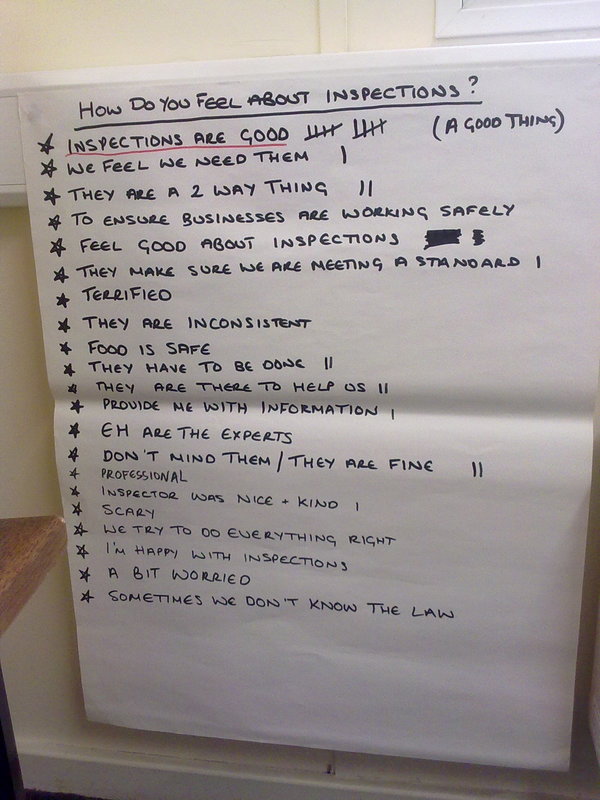 HOW DO YOU FEEL ABOUT INSPECTIONS?
INSPECTIONS ARE GOOD (A GOOD THING)
WE FEEL WE NEED THEM
THEY ARE A 2 WAY THING
TO ENSURE BUSINESSES ARE WORKING SAFELY
FEEL GOOD ABOUT INSPECTIONS
THEY MAKE SURE WE ARE MEETING A STANDARD
TERRIFIED
THEY ARE INCONSISTENT
FOOD IS SAFE
THEY HAVE TO BE DONE
THEY ARE THERE TO HELP US
PROVIDE ME WITH INFORMATION
EH ARE THE EXPERTS
DON'T MIND THEM / THEY ARE FINE
PROFESSIONAL
INSPECTOR WAS NICE + KIND
SCARY
WE TRY TO DO EVERYTHING RIGHT
I'M HAPPY WITH INSPECTIONS
A BIT WORRIED
SOMETIMES WE DON'T KNOW THE LAW